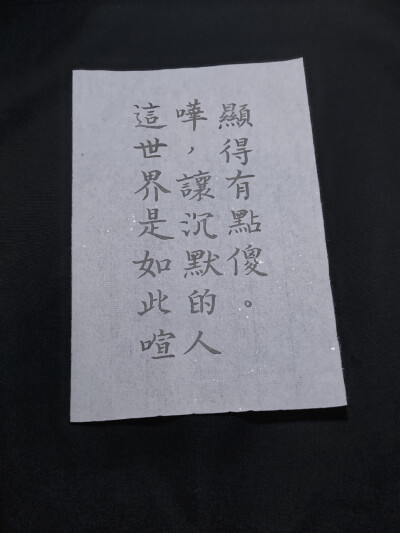 這世界是如此喧
嘩，讓沉默的人
顯得有點傻。